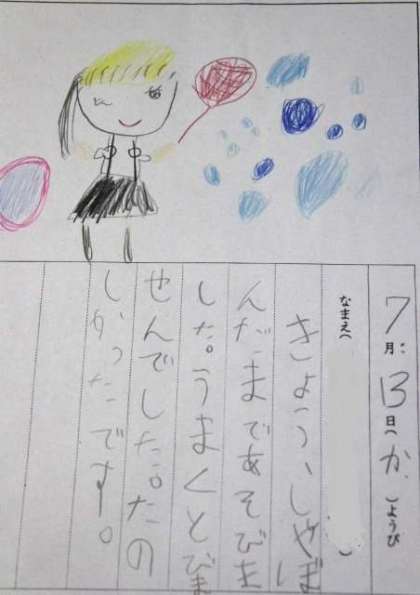 7月13日(か)ようび
なまえ( )
きょう、しゃぼ
んだまであそびま
した。うまくとびま
せんでした。たの
しかったです。